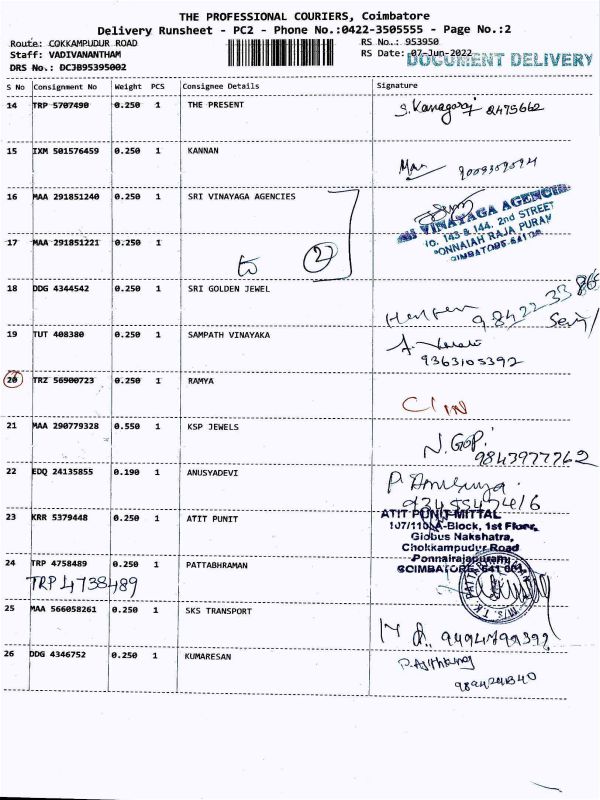 THE PROFESSIONAL COURIERS, Coimbatore
Delivery Runsheet - PC2 - Phone No.:0422-3505555 - Page No.:2
Route: COKKAMPUDUR ROAD RS No.: 953950
Staff: VADIVANANTHAM RS Date: 07-Jun-2022
DRS No.: DCJB95395002 DOCUMENT DELIVERY
S No Consignment No Weight PCS Consignee Details Signature
14 TRP 5707490 0.250 1 THE PRESENT S. Kanagaraj 2475662
15 IXM 501576459 0.250 1 KANNAN
16 MAA 291851240 0.250 1 SRI VINAYAGA AGENCIES
VINAYAGA AGENCIES
143 & 144, 2nd STREET
PONNAIAH RAJA PURAM
17 MAA 291851221 0.250 1
to 2
COIMBATORE-641 001
18 DDG 4344542 0.250 1 SRI GOLDEN JEWEL
98422-33
19 TUT 408380 0.250 1 SAMPATH VINAYAKA
9363105392
20 TRZ 56900723 0.250 1 RAMYA
C/IN
21 MAA 290779328 0.550 1 KSP JEWELS
N. Gopi
9843977762
22 EDQ 24135855 0.190 1 ANUSYADEVI P. Anusuya
23 KRR 5379448 0.250 1 ATIT PUNIT
ATIT PUNIT MITTAL
107/110, A-Block, 1st Floor,
Globus Nakshatra,
Chokkampudur Road
Ponnairajapuram,
COIMBATORE-641 001
24 TRP 4758489 0.250 1 PATTABHRAMAN
TRP 4738489
25 MAA 566058261 0.250 1 SKS TRANSPORT
26 DDG 4346752 0.250 1 KUMARESAN
P. Ajithkumar